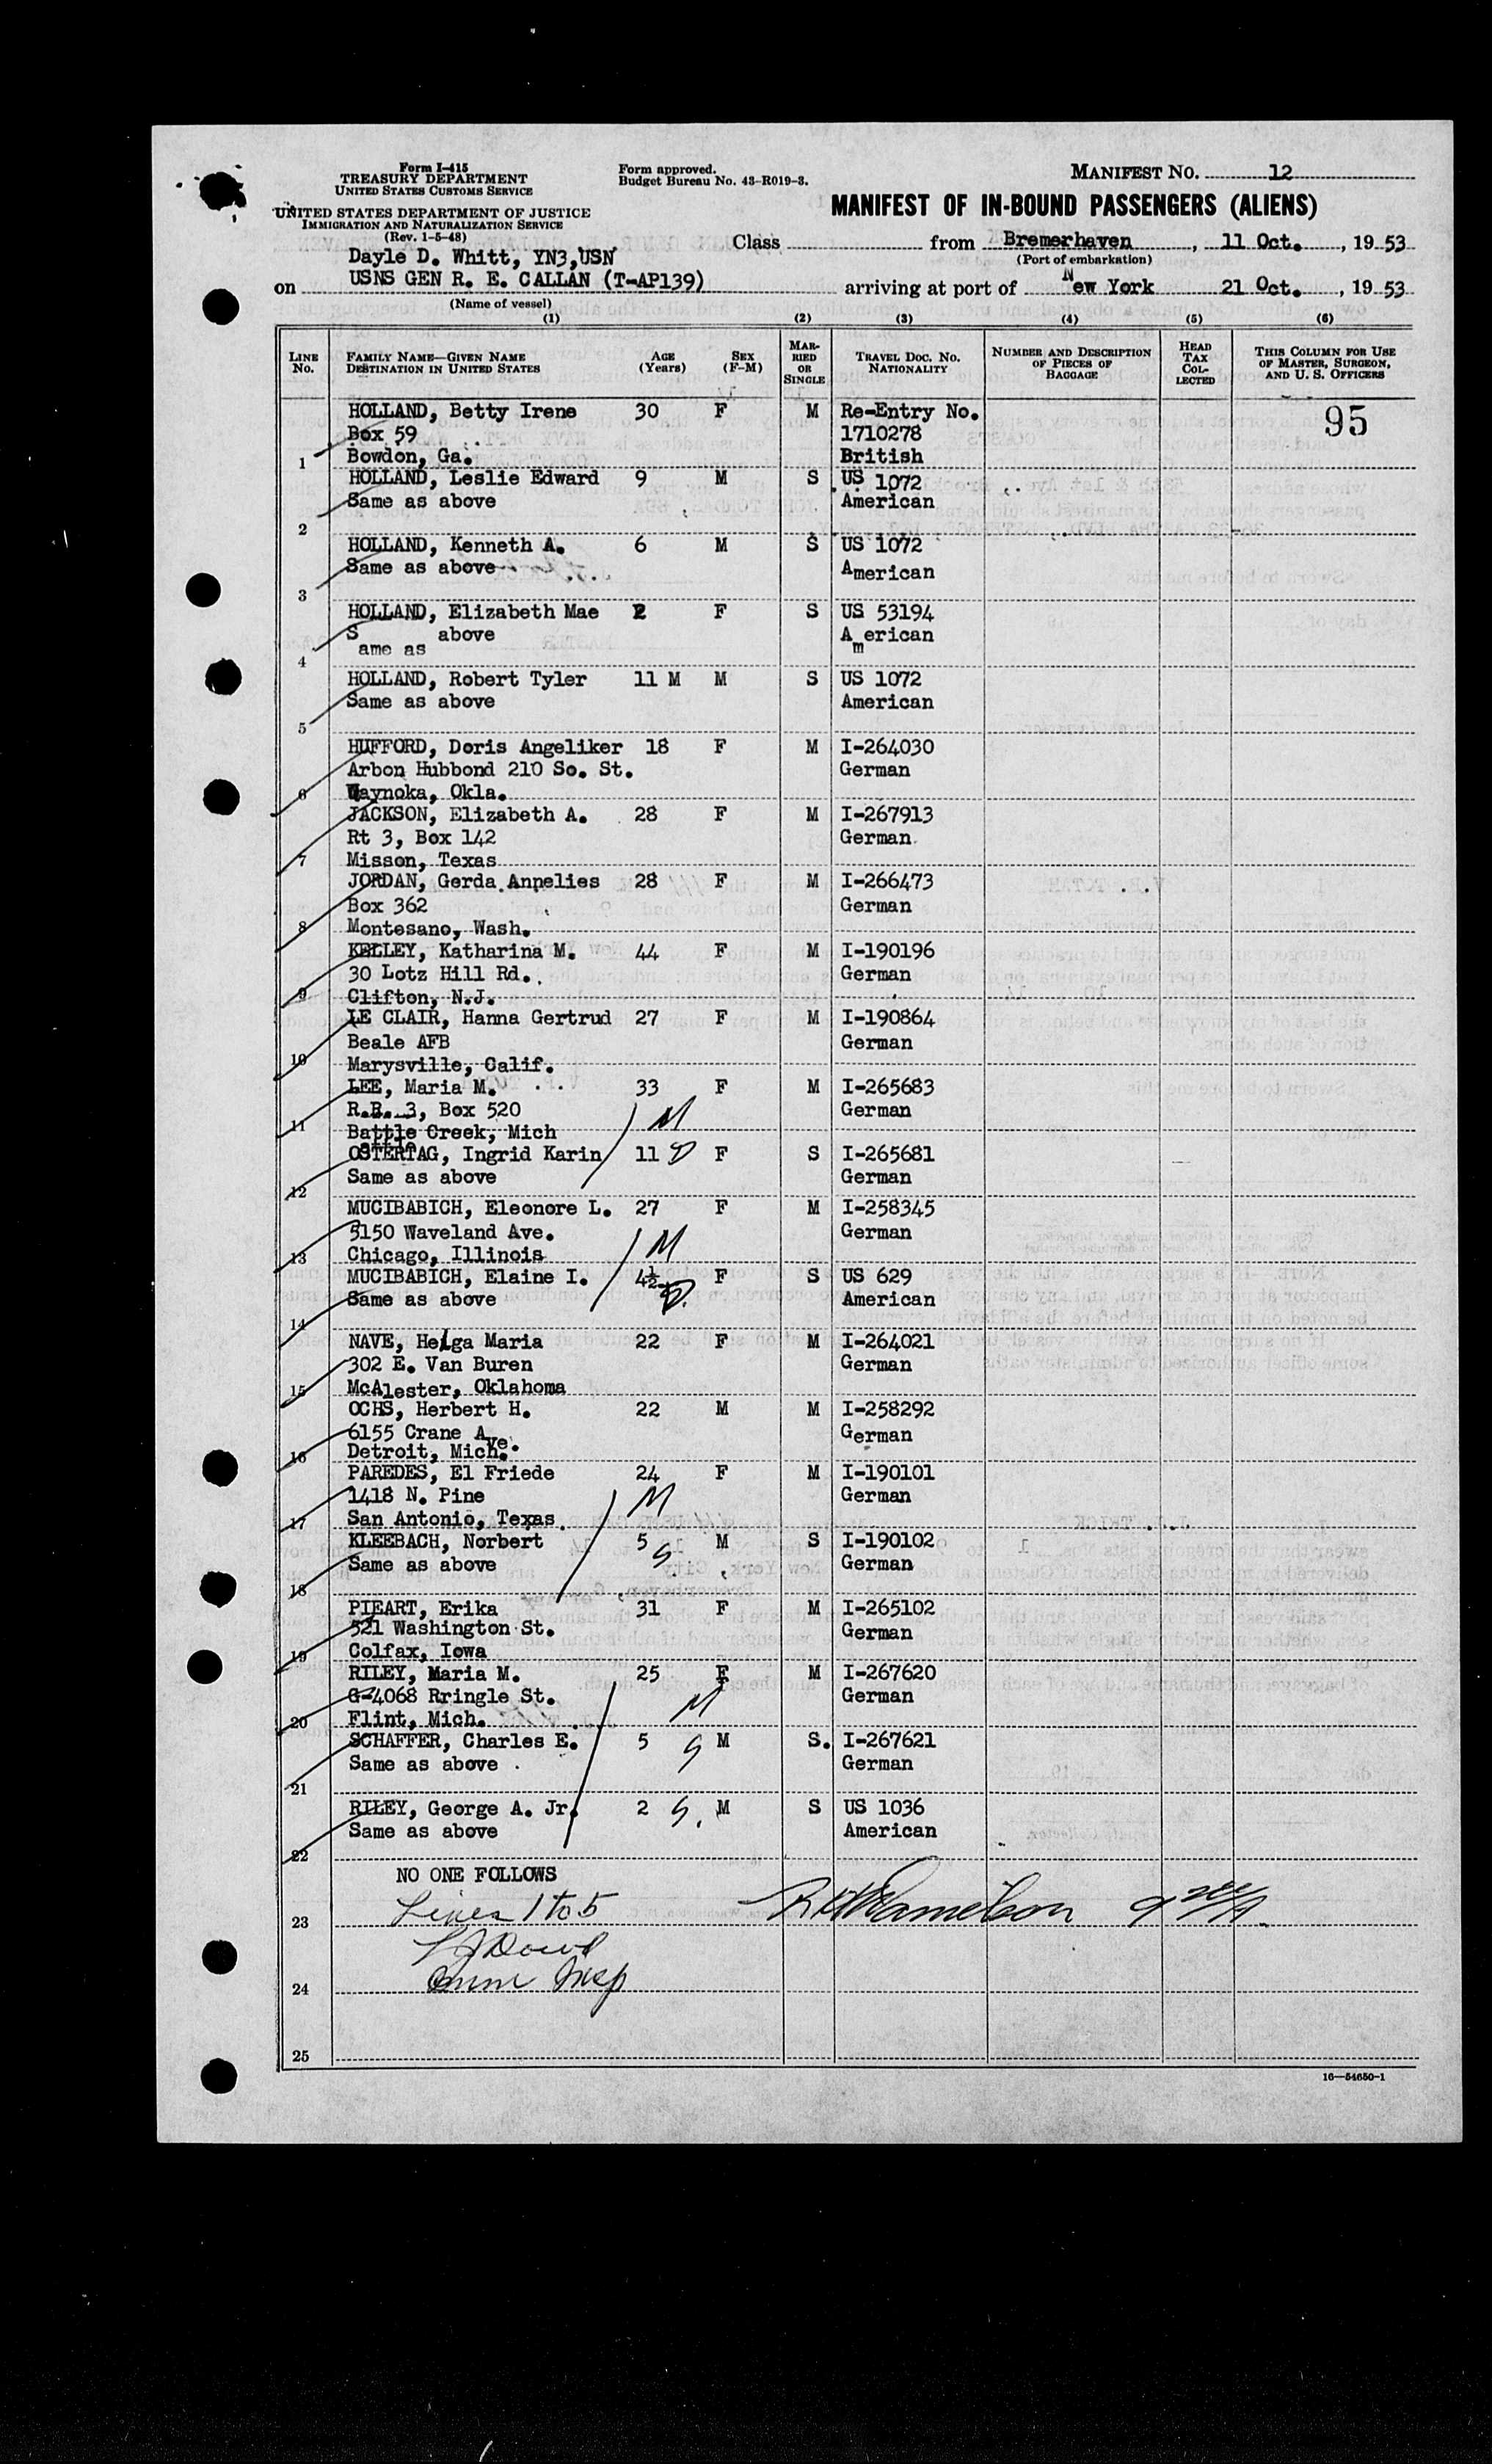 Form I-415
TREASURY DEPARTMENT
UNITED STATES CUSTOMS SERVICE
UNITED STATES DEPARTMENT OF JUSTICE
IMMIGRATION AND NATURALIZATION SERVICE
(Rev. 1-5-48)
Form approved.
Budget Bureau No. 43-R019-3.
MANIFEST NO. 12
MANIFEST OF IN-BOUND PASSENGERS (ALIENS)
Dayle D. Whitt, YN3, USN
Class from Bremerhaven, 11 Oct., 1953
(Port of embarkation)
on USNS GEN R. E. CALLAN (T-AP139) arriving at port of New York 21 Oct., 1953
(Name of vessel)
(1) (2) (3) (4) (5) (6)
LINE NO. FAMILY NAME—GIVEN NAME DESTINATION IN UNITED STATES AGE (Years) SEX (F-M) MARRIED OR SINGLE TRAVEL DOC. NO. NATIONALITY NUMBER AND DESCRIPTION OF PIECES OF BAGGAGE HEAD TAX COLLECTED THIS COLUMN FOR USE OF MASTER, SURGEON, AND U. S. OFFICERS
HOLLAND, Betty Irene 30 F M Re-Entry No. 95
Box 59 1710278
1 Bowdon, Ga. British
HOLLAND, Leslie Edward 9 M S US 1072
Same as above American
2
HOLLAND, Kenneth A. 6 M S US 1072
Same as above American
3
HOLLAND, Elizabeth Mae 2 F S US 53194
Same as above American
4
HOLLAND, Robert Tyler 11 M M S US 1072
Same as above American
5
HUFFORD, Doris Angeliker 18 F M I-264030
Arbon Hubbond 210 So. St. German
6 Waynoka, Okla.
JACKSON, Elizabeth A. 28 F M I-267913
Rt 3, Box 142 German
7 Misson, Texas
JORDAN, Gerda Annelies 28 F M I-266473
Box 362 German
8 Montesano, Wash.
KELLEY, Katharina M. 44 F M I-190196
30 Lotz Hill Rd. German
9 Clifton, N.J.
LE CLAIR, Hanna Gertrud 27 F M I-190864
Beale AFB German
10 Marysville, Calif.
LEE, Maria M. 33 F M I-265683
R.R. 3, Box 520 M German
11 Battle Creek, Mich
OSTERTAG, Ingrid Karin 11 D F S I-265681
Same as above German
12
MUCIBABICH, Eleonore L. 27 F M I-258345
5150 Waveland Ave. German
13 Chicago, Illinois M
MUCIBABICH, Elaine I. 4½ D. F S US 629
Same as above American
14
NAVE, Helga Maria 22 F M I-264021
302 E. Van Buren German
15 McAlester, Oklahoma
OCHS, Herbert H. 22 M M I-258292
6155 Crane Ave. German
16 Detroit, Mich.
PAREDES, El Friede 24 F M I-190101
1418 N. Pine M German
17 San Antonio, Texas
KLEEBACH, Norbert 5 S M S I-190102
Same as above German
18
PIEART, Erika 31 F M I-265102
521 Washington St. German
19 Colfax, Iowa
RILEY, Maria M. 25 F M I-267620
G-4068 Rringle St. M German
20 Flint, Mich.
SCHAFFER, Charles E. 5 S M S. I-267621
Same as above German
21
RILEY, George A. Jr. 2 S. M S US 1036
Same as above American
22
NO ONE FOLLOWS
23 Lines 1 to 5
Dowd
24 Imm Insp
25
16—54650-1